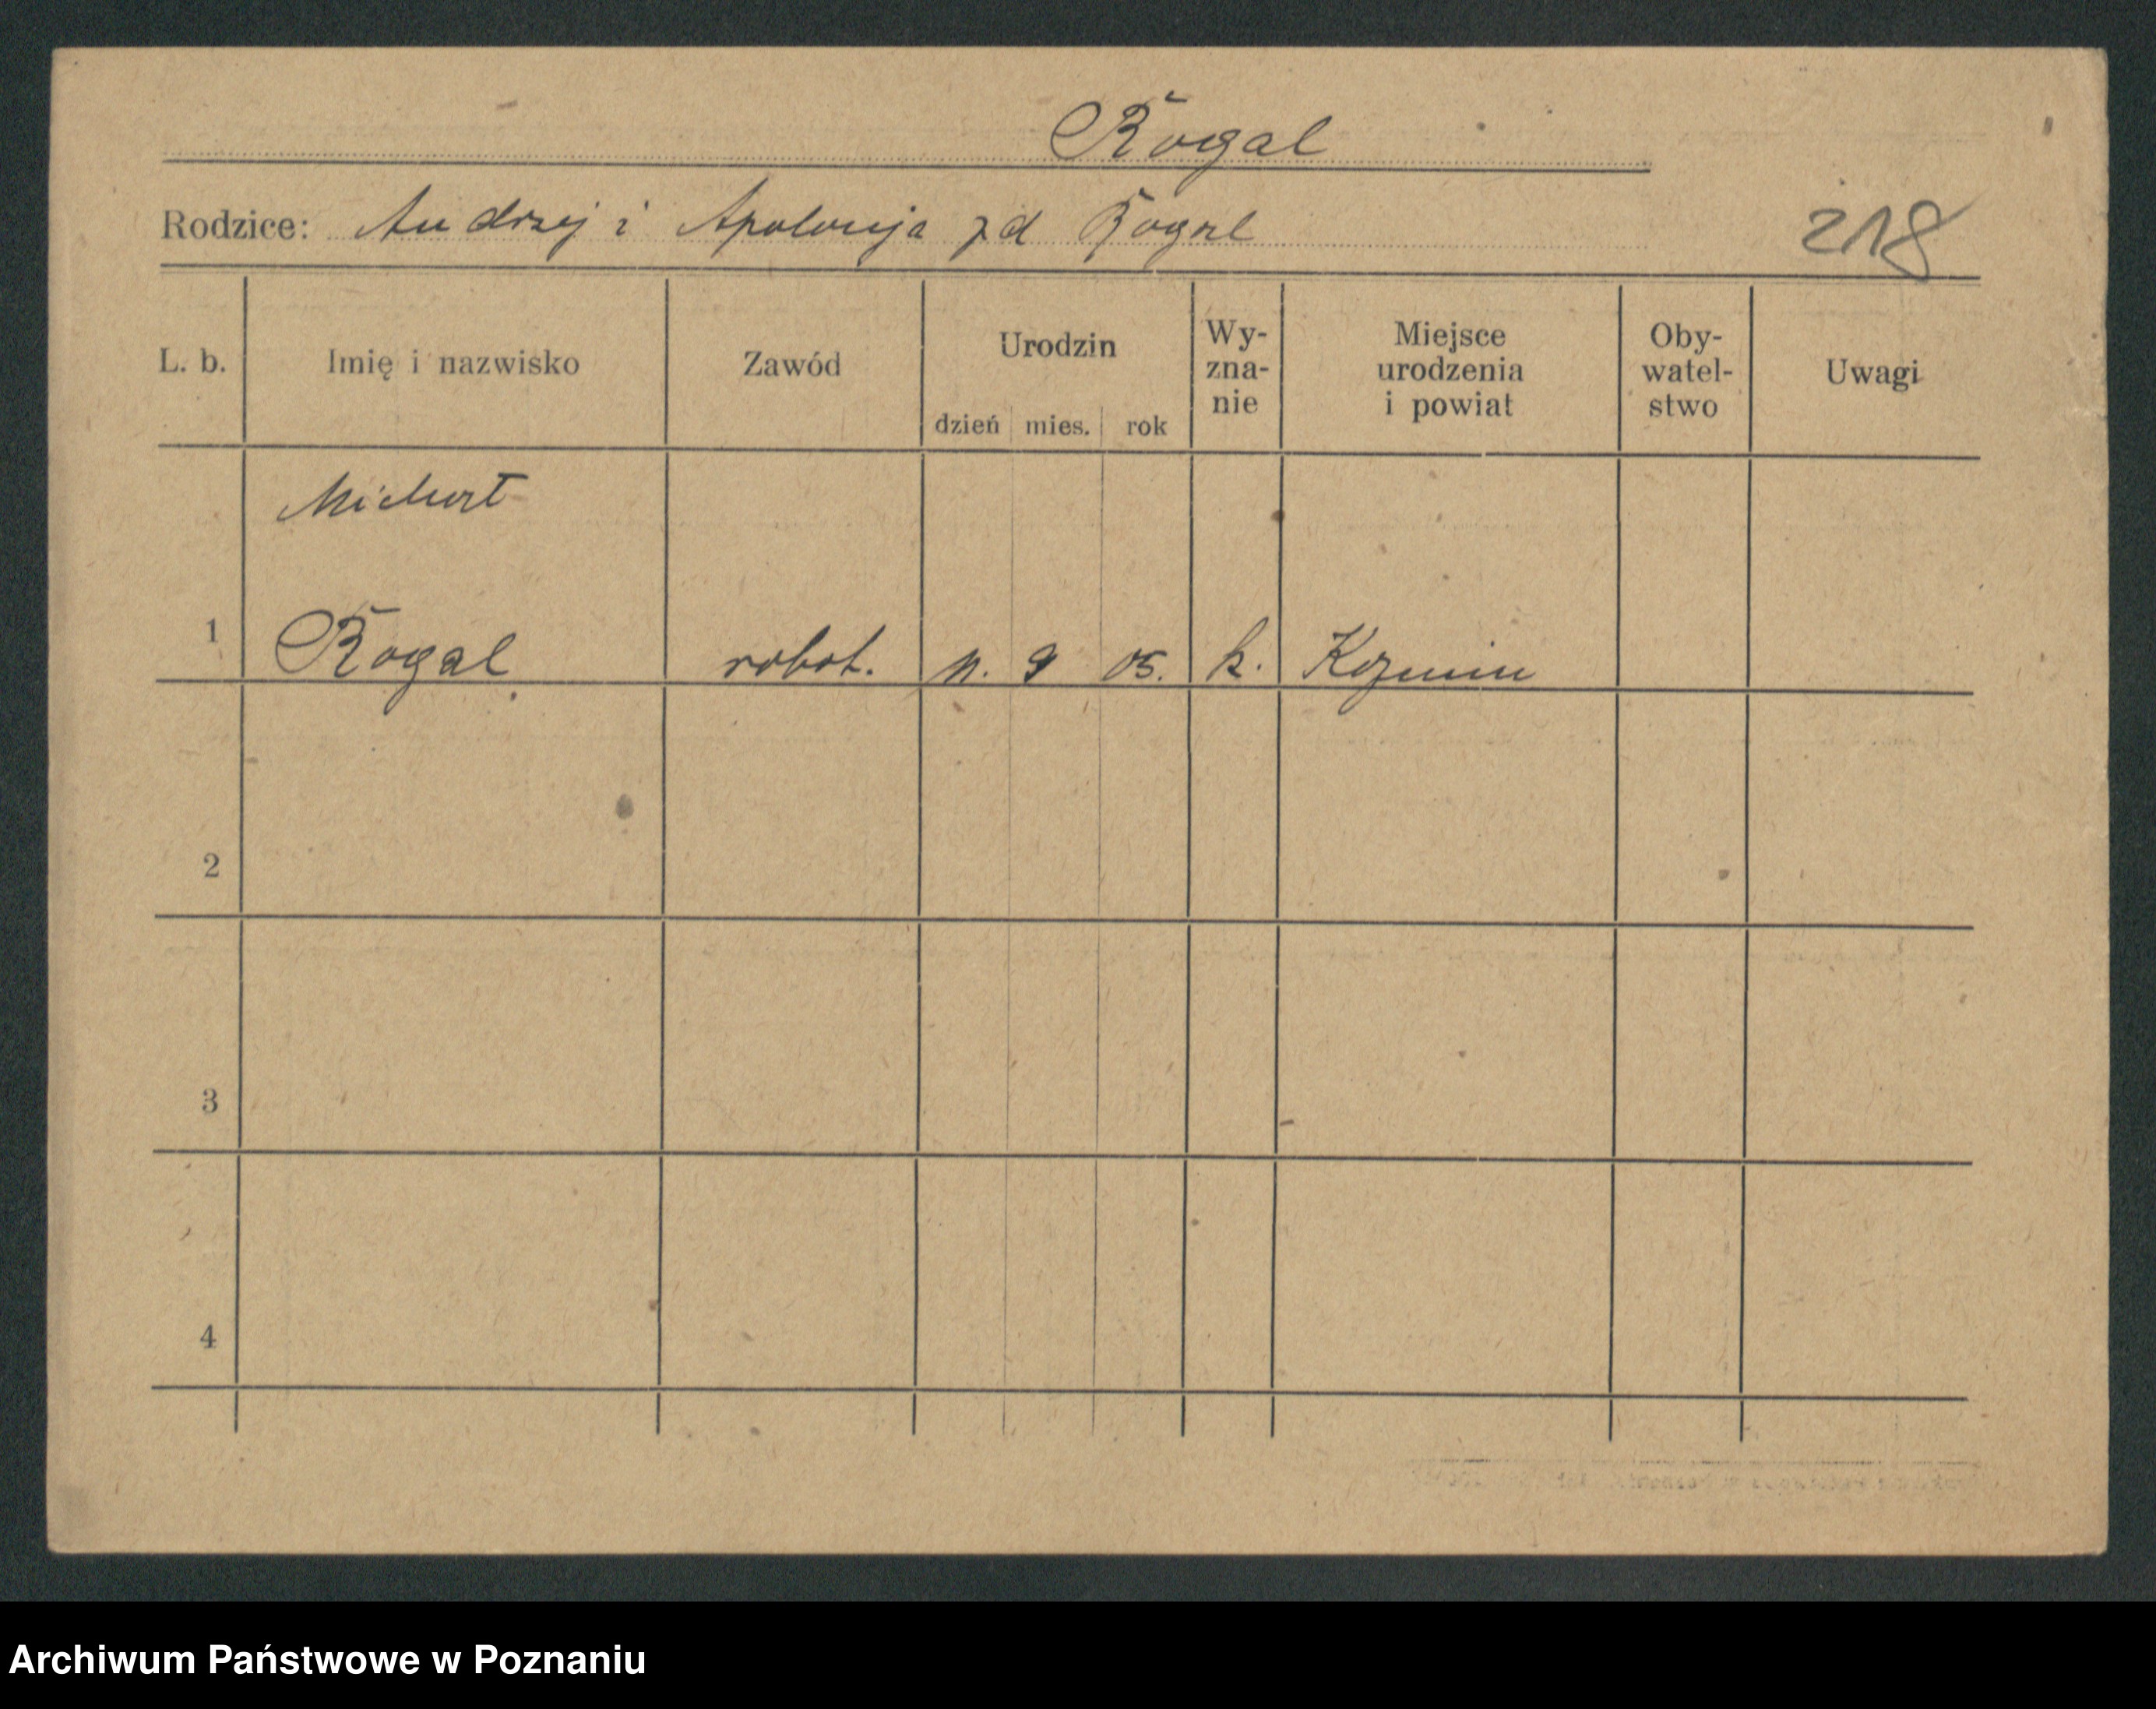 Rogal
Rodzice: Andrzej i Apolonja zd Rogal
218
L. b. Imię i nazwisko Zawód Urodzin dzień mies. rok Wy-zna-nie Miejsce urodzenia i powiat Oby-watel-stwo Uwagi
Michał
1 Rogal robot. 11. 9 05. k. Kozmin
2
3
4
Archiwum Państwowe w Poznaniu